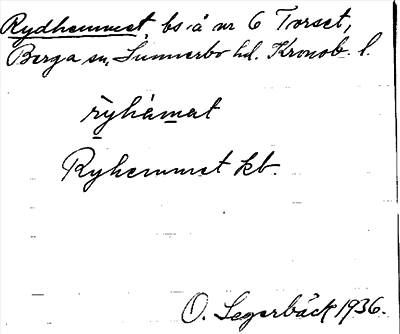 Rydhemmet, bs å nr 6 Torset,
Berga sn, Sunnerbo hd. Kronob. l.
ryhèmat
Ryhemmet kb.
O. Segerbäck 1936.